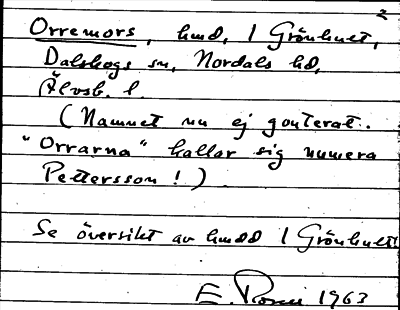 2
Orremors, hmd, I Grönhult,
Dalskogs sn, Nordals hd,
Älvsb. l.
(Namnet nu ej gouterat.
"Orrarna" kallar sig numera
Pettersson!)
Se översikt av hmdd I Grönhult!
E. 1963